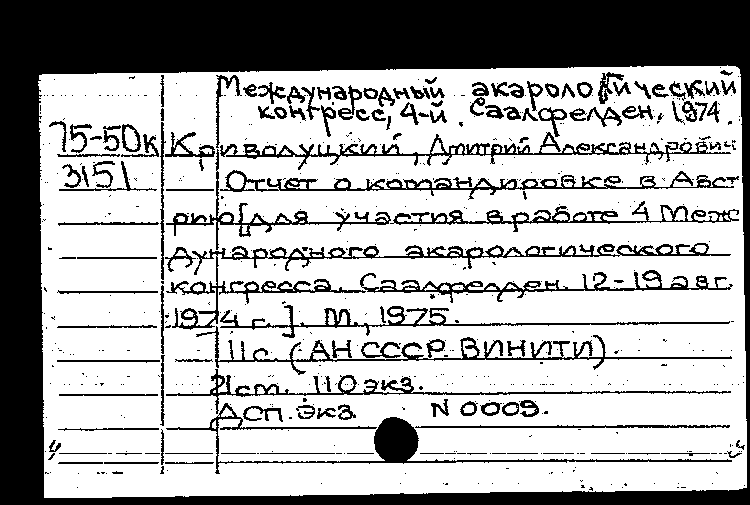 Международный акарологический
конгресс, 4-й. Саалфелден, 1974.
75-50к Криволуцкий, Дмитрий Александрович
3151 Отчет о командировке в Авст
рию [для участия в работе 4 Меж
дународного акарологического
конгресса. Саалфелден. 12-19 авг.
1974 г.]. М., 1975.
11 с. (АН СССР. ВИНИТИ).
21 см. 110 экз.
ДСП. Экз. N 0009.